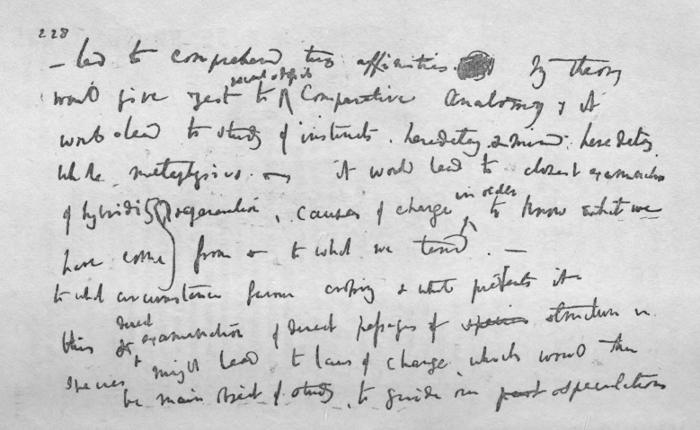 228
– led to comprehend true affinities. My theory
would give zest to recent & fossil Comparative Anatomy, & it
would lead to study of instincts, heredity, & mind heredity,
whole metaphysics. – it would lead to closest examination
of hybridity & generation, causes of change in order to know what we
have come from & to what we tend. –
to what circumstances favour crossing & what prevents it –
this & direct examination of direct passages of species structure in
species, might lead to laws of change, which would then
be main object of study, to guide our past speculations